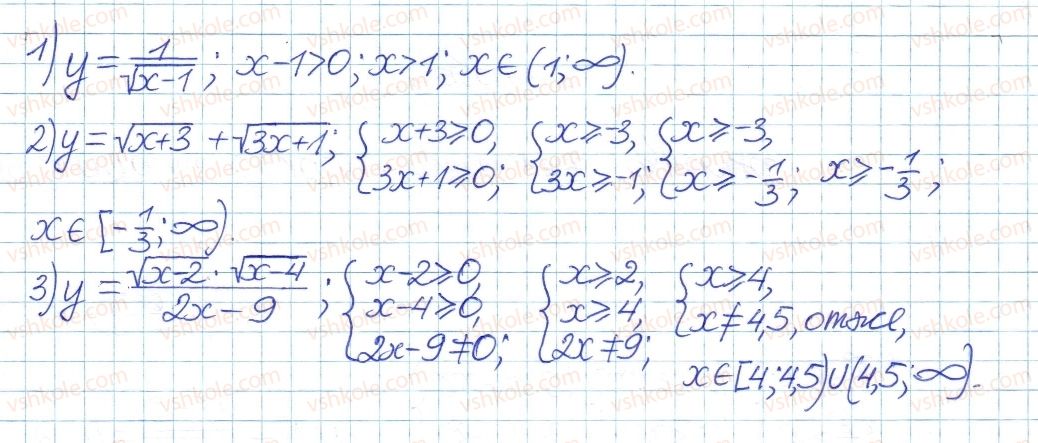 1) y = 1/√(x-1); x-1>0; x>1; x∈(1;∞).
2) y = √(x+3) + √(3x+1); { x+3≥0, 3x+1≥0; { x≥-3, 3x≥-1; { x≥-3, x≥-1/3; x≥-1/3;
x∈[-1/3;∞).
3) y = (√(x-2)·√(x-4))/(2x-9); { x-2≥0, x-4≥0, 2x-9≠0; { x≥2, x≥4, 2x≠9; { x≥4, x≠4,5, отже,
x∈[4;4,5)∪(4,5;∞).
vshkole.com